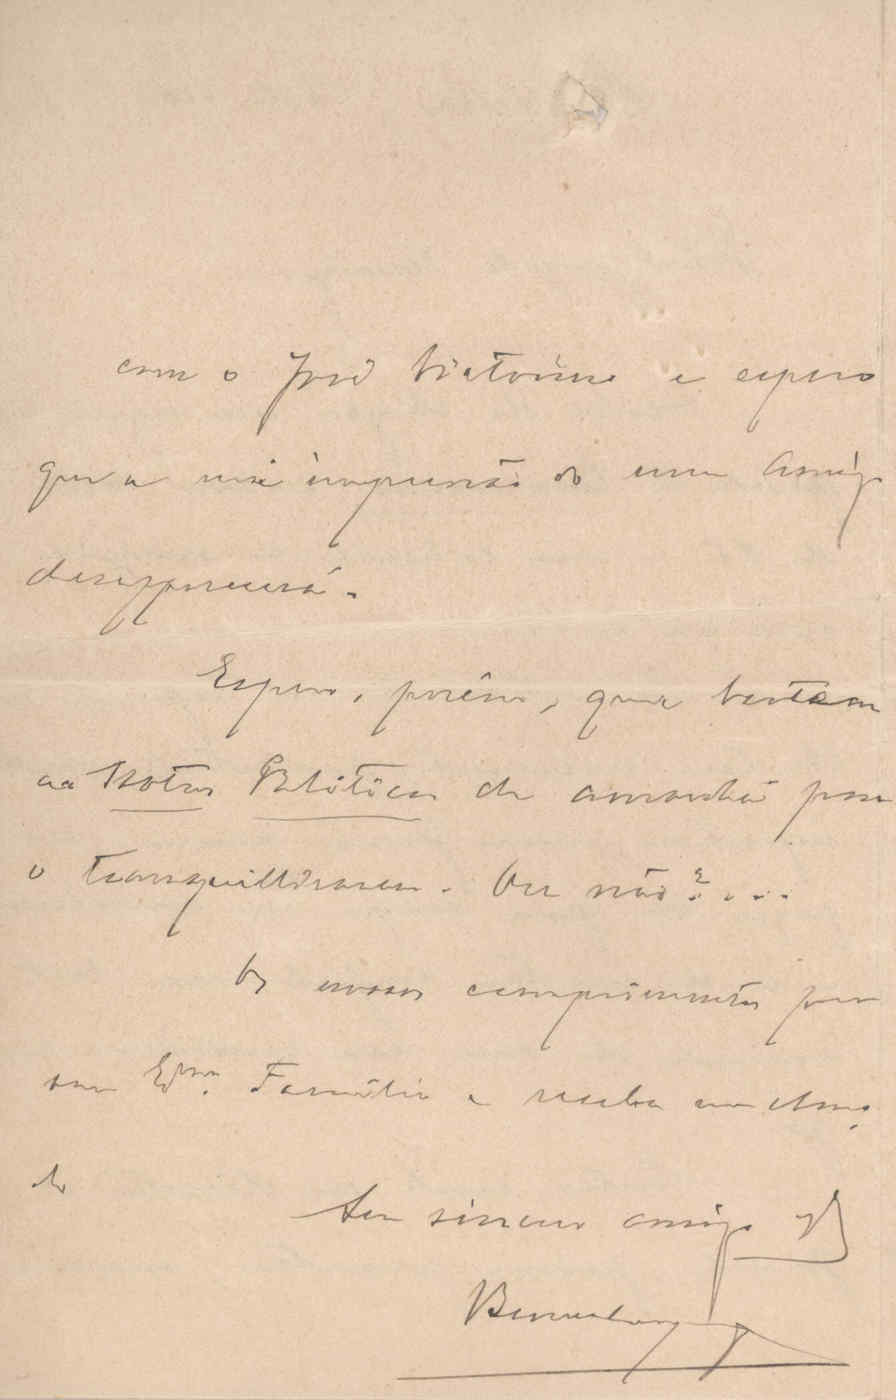 com o José Victorino e espero
que a má impressão do meu amigo
desapparecerá.
Espero, porém, que bastem
as Notas Politicas de amanhã para
o tranquillisarem. Ou não?...
Os nossos comprimentos para
sua Exma. Familia e receba um
do
seu sincero amigo
Bernardino